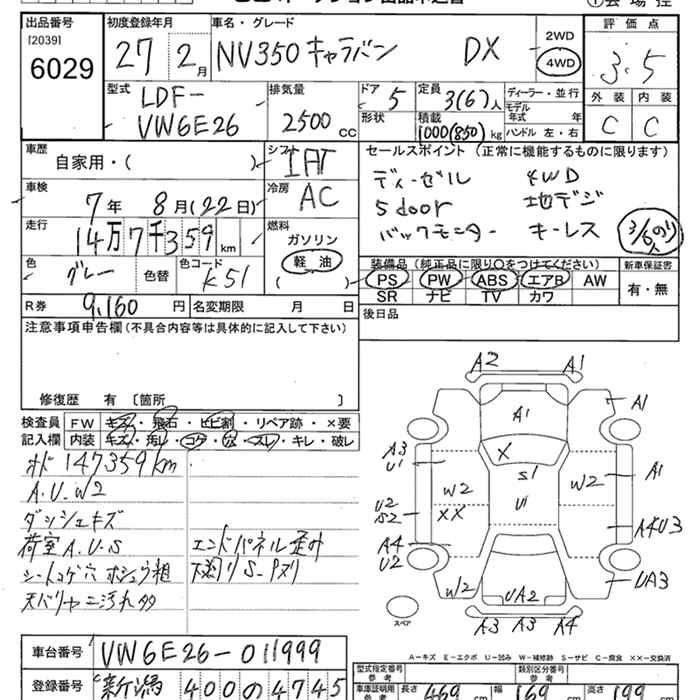 出品番号 初度登録年月 車名・グレード 評価点
[2039] 2WD
6029 27 2月 NV350 キャラバン DX 4WD 3.5
型式 排気量 ドア 定員 ディーラー・並行 外装 内装
LDF- 5 3(6)人 モデル年式 年
VW6E26 2500cc 形状 積載 C C
1000(850)kg ハンドル 左・右
車歴 シフト セールスポイント (正常に機能するものに限ります)
自家用・( ) IAT ディーゼル 4WD
車検 冷房 5door 地デジ
7年 8月(22日) AC バックモニター キーレス
走行 燃料 3/6のり
14万7千359km ガソリン
色 色替 色コード 軽油 装備品 (純正品に限り○をつけてください) 新車保証書
グレー K51 ( ) PS PW ABS エアB AW 有・無
SR ナビ TV カワ
R券 9,160円 名変期限 月 日 後日品
注意事項申告欄(不具合内容等は具体的に記入して下さい)
修復歴 有 〔箇所 〕
検査員 FW キズ・飛石・ヒビ割・リペア跡・×要
記入欄 内装 キズ・汚れ・コゲ・穴・スレ・キレ・破レ
メーター 147359km
A.U.W2
ダッシュキズ
荷室A.U.S エンドパネル歪み
シートコゲ穴 下廻りS・Pヌリ
天バリヤニ汚れ多
A2 A1
A1 A1
A3 U1 X S1 A1
W2 W2
U2 S2 XX U1 A4U3
A4 U2
W2 UA2 UA3
スペア A3 A3 A4
A-キズ E-エクボ U-凹み W-補修跡 S-サビ C-腐食 XX-交換済
車台番号 VW6E26-011999
型式指定番号 参考 類別区分番号 参考
登録番号 新潟 400 の 4745
車庫証明用 参考 長さ 469cm 幅 169cm 高さ 199cm